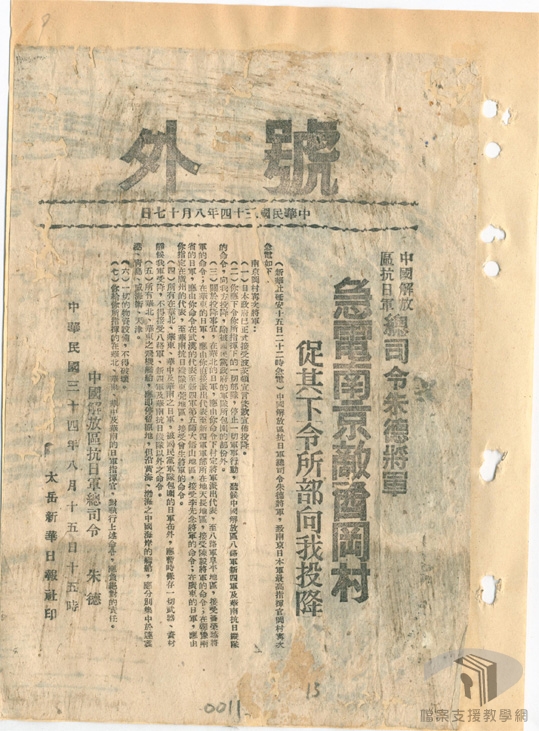 號外
中華民國三十四年八月十七日
中國解放區抗日軍總司令朱德將軍
急電南京敵酋岡村
促其下令所部向我投降
（新華社延安十五日二十二時急電）中國解放區抗日軍總司令朱德將軍，
急電如下
南京岡村寧次將軍：
（一）日本政府已正式接受波茨頓宣言條款宣佈投降。
（二）你應下令你所指揮下的一切部隊，停止一切軍事行動，聽候中國解放區八路軍新四軍及華南抗日縱隊
的命令，向我方投降，除被國民黨政府的軍隊所包圍的部份外。
（三）關於投降事宜，在華北的日軍，應由你命令下村定將軍派出代表，至八路軍阜平地區，接受聶榮臻將
軍的命令；在華東的日軍，應由你直接派出代表至新四軍軍部所在地天長地區，接受陳毅將軍的命令；在鄂豫兩
省的日軍，應由你命令在武漢的代表至新四軍第五師大悟山地區，接受李先念將軍的命令；在廣東的日軍，應由
你指定在廣州的代表，至華南抗日縱隊東莞地區，接受曾生將軍的命令。
（四）所有在華北、華東、華中及華南之日軍，
聽候我軍受降，不得接受八路軍、新四軍及華南抗日縱隊以外之命令。
（五）所有華北、華東之飛機艦船，應即停留原地，
（六）一切物資設備，不得破壞。
（七）你及你所指揮的在華北、華東、華中及華南的日軍指揮官，對執行上述命令，應負絕對的責任。
中國解放區抗日軍總司令 朱德
中華民國三十四年八月十五日十五時
太岳新華日報社印
0011
15
檔案支援教學網